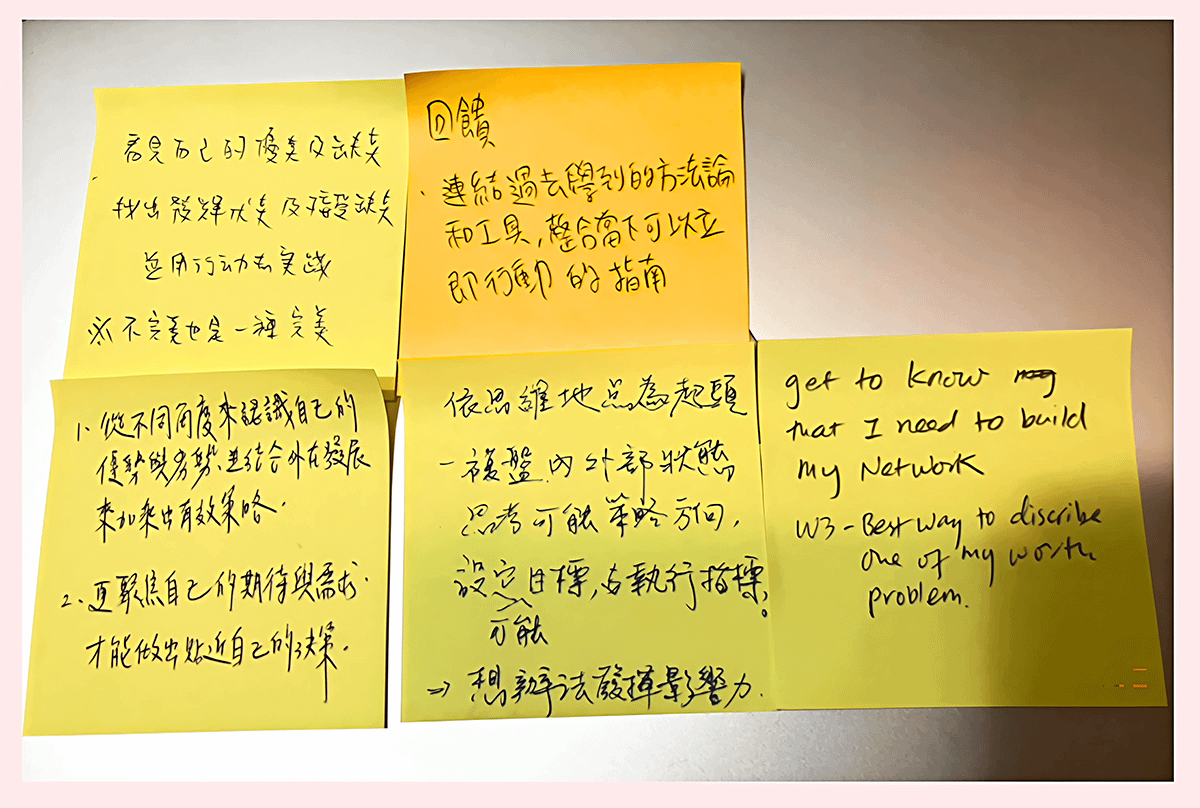 看見自己的優美及缺美
找出發輝优美及接受缺美
並用行动去实踐
※不完美也是一種完美
回饋
· 連結過去學到的方法論
和工具,整合當下可以立
即行動的指南
1. 從不同角度來認識自己的
優勢與劣勢、並結合外在發展
來加乘出有效策略。
2. 更聚焦自己的期待與需求,
才能做出貼近自己的決策。
依思維地点為起頭
一複盤內外部狀態
思考可能策略方向,
設定目標,与執行指標,。
可能
⇒ 想辦法發揮影響力.
get to know
that I need to build
my Network
W3 - Best way to discribe
one of my worth
problem.